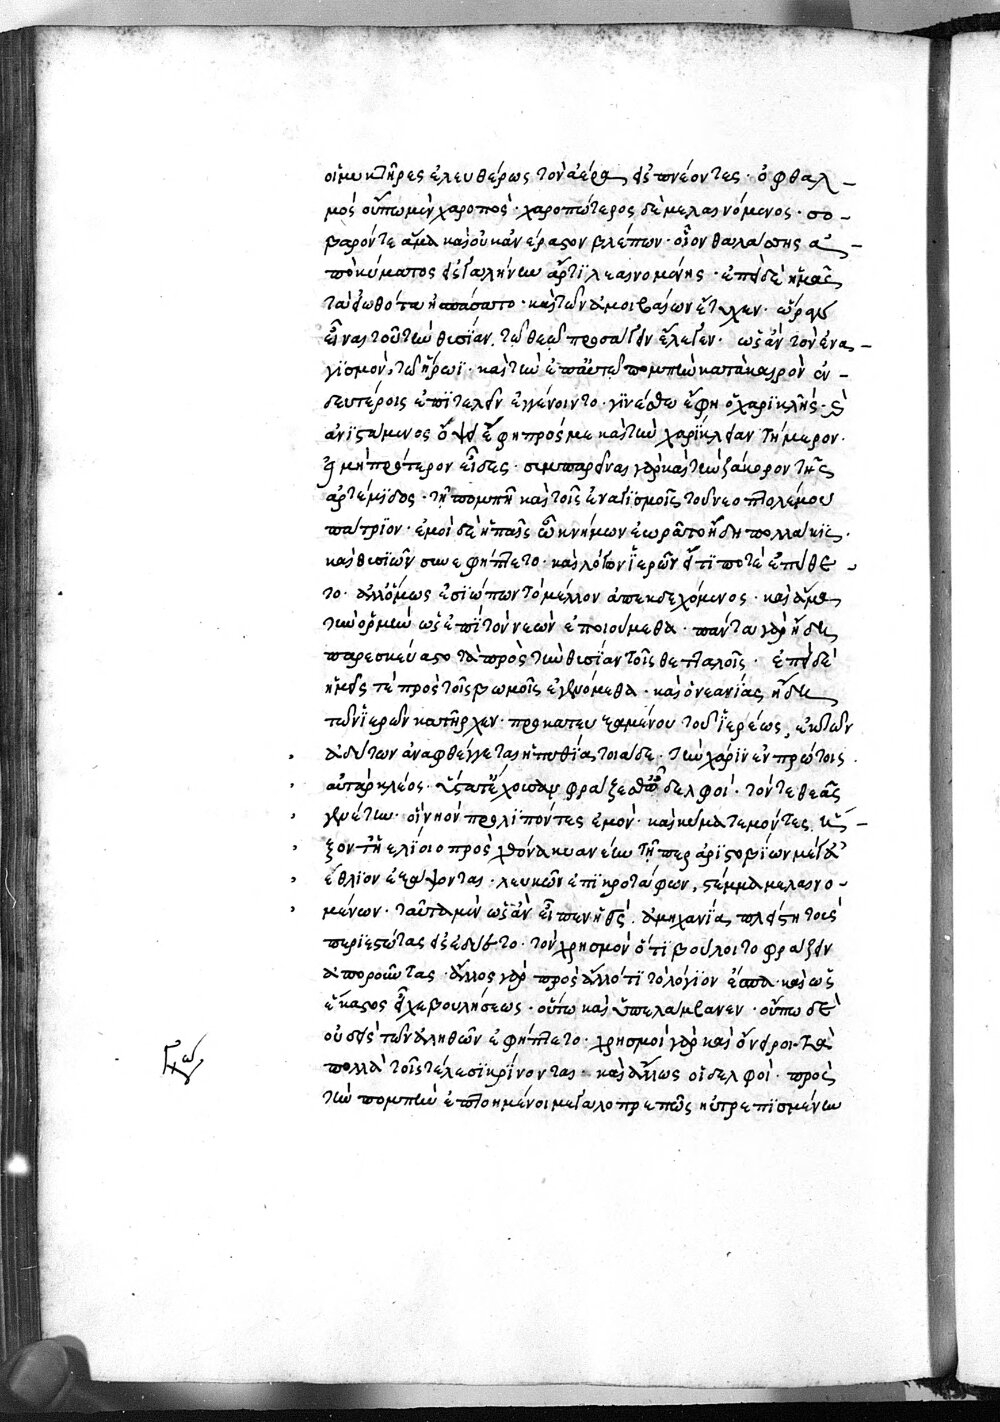 οἱ μυκτῆρες ἐλευθέρως τὸν ἀέρα εἰσπνέοντες· ὀφθαλ-
μὸς οὔπω μὲν χαροπὸς· χαροπώτερος δὲ μελαινόμενος· σο-
βαρόν τε ἅμα καὶ οὐκ ἀνέραστον βλέπων· οἷον θαλάσσης ἀ-
πὸ κύματος εἰς γαλήνην ἄρτι λεαινομένης· ἐπεὶ δὲ ἡμᾶς
τὰ εἰωθότα ἠσπάσατο· καὶ τῶν ἀμοιβαίων ἔτυχεν· ὥραν
εἶναι τοῦ τὴν θυσίαν τῷ θεῷ προσάγειν ἔλεγεν· ὡς ἂν τὸν ἐνα-
γισμὸν τῷ ἥρωϊ· καὶ τὴν ἐπ' αὐτῷ πομπὴν κατὰ καιρὸν ἐν
δευτέροις ἐπιτελεῖν ἐγγένοιντο· γινέσθω ἔφη ὁ χαρικλῆς· καὶ
ἀνιστάμενος ὄψει ἔφη πρός με καὶ τὴν χαρίκλειαν τήμερον·
εἰ μὴ πρότερον εἶδες· συμπαρεῖναι γὰρ καὶ τὴν ζάκορον τῆς
ἀρτέμιδος· τῇ πομπῇ καὶ τοῖς ἐναγισμοῖς τοῦ νεοπτολέμου
πάτριον· ἐμοὶ δὲ ἡ παῖς ὦ κνήμων ἑωρᾶτο ἤδη πολλάκις·
καὶ θυσιῶν συνεφήπτετο· καὶ λόγον ἱερῶν ἔτι ποτὲ ἐπύθε-
το· ἀλλ' ὅμως ἐσιώπων τὸ μέλλον ἀπεκδεχόμενος· καὶ ἅμα
τὴν ὁρμὴν ὡς ἐπὶ τὸν νεὼν ἐποιούμεθα· πάντα γὰρ ἤδη
παρεσκεύαστο τὰ πρὸς τὴν θυσίαν τοῖς θετταλοῖς· ἐπεὶ δὲ
ἡμεῖς τὲ πρὸς τοῖς βωμοῖς ἐγενόμεθα· καὶ ὁ νεανίας ἤδη
τῶν ἱερῶν κατῆρχεν· προκατευξαμένου τοῦ ἱερέως, ἐκ τῶν
ἀδύτων ἀναφθέγγεται ἡ πυθία τοιάδε· τὴν χάριν ἐν πρώτοις
αὐτὰρ κλέος· ὕστατ' ἔχουσαν φράζεσθ' ὦ δελφοί· τόν τε θεᾶς
γενέτην· οἳ νηὸν προλιπόντες ἐμόν· καὶ κῦμα τεμόντες· ἵ-
ξοντ' ἠελίοιο πρὸς χθόνα κυανέην τῇ περ ἀριστοβίων μέγ' ἀ-
έθλιον ἐξάψονται· λευκῶν ἐπὶ κροτάφων, στέμμα μελαινο-
μένων· ταῦτα μὲν ὡς ἂν εἶπεν ἡ θεός· ἀμηχανία πλείστη τοὺς
περιεστῶτας εἰσεδύετο· τὸν χρησμὸν ὅ τι βούλοιτο φράζειν
ἀποροῦντας· ἄλλος γὰρ πρὸς ἄλλό τι τὸ λόγιον ἔσπα· καὶ ὡς
ἕκαστος εἶχε βουλήσεως· οὕτω καὶ ὑπελάμβανεν· οὔπω δὲ
οὐδεὶς τῶν ἀληθῶν ἐφήπτετο· χρησμοὶ γὰρ καὶ ὄνειροι τὰ
πολλὰ τοῖς τέλεσι κρίνονται· καὶ ἄλλως οἱ δελφοὶ· πρὸς
τὴν πομπὴν ἐπτοημένοι μεγαλοπρεπῶς ηὐτρεπισμένην